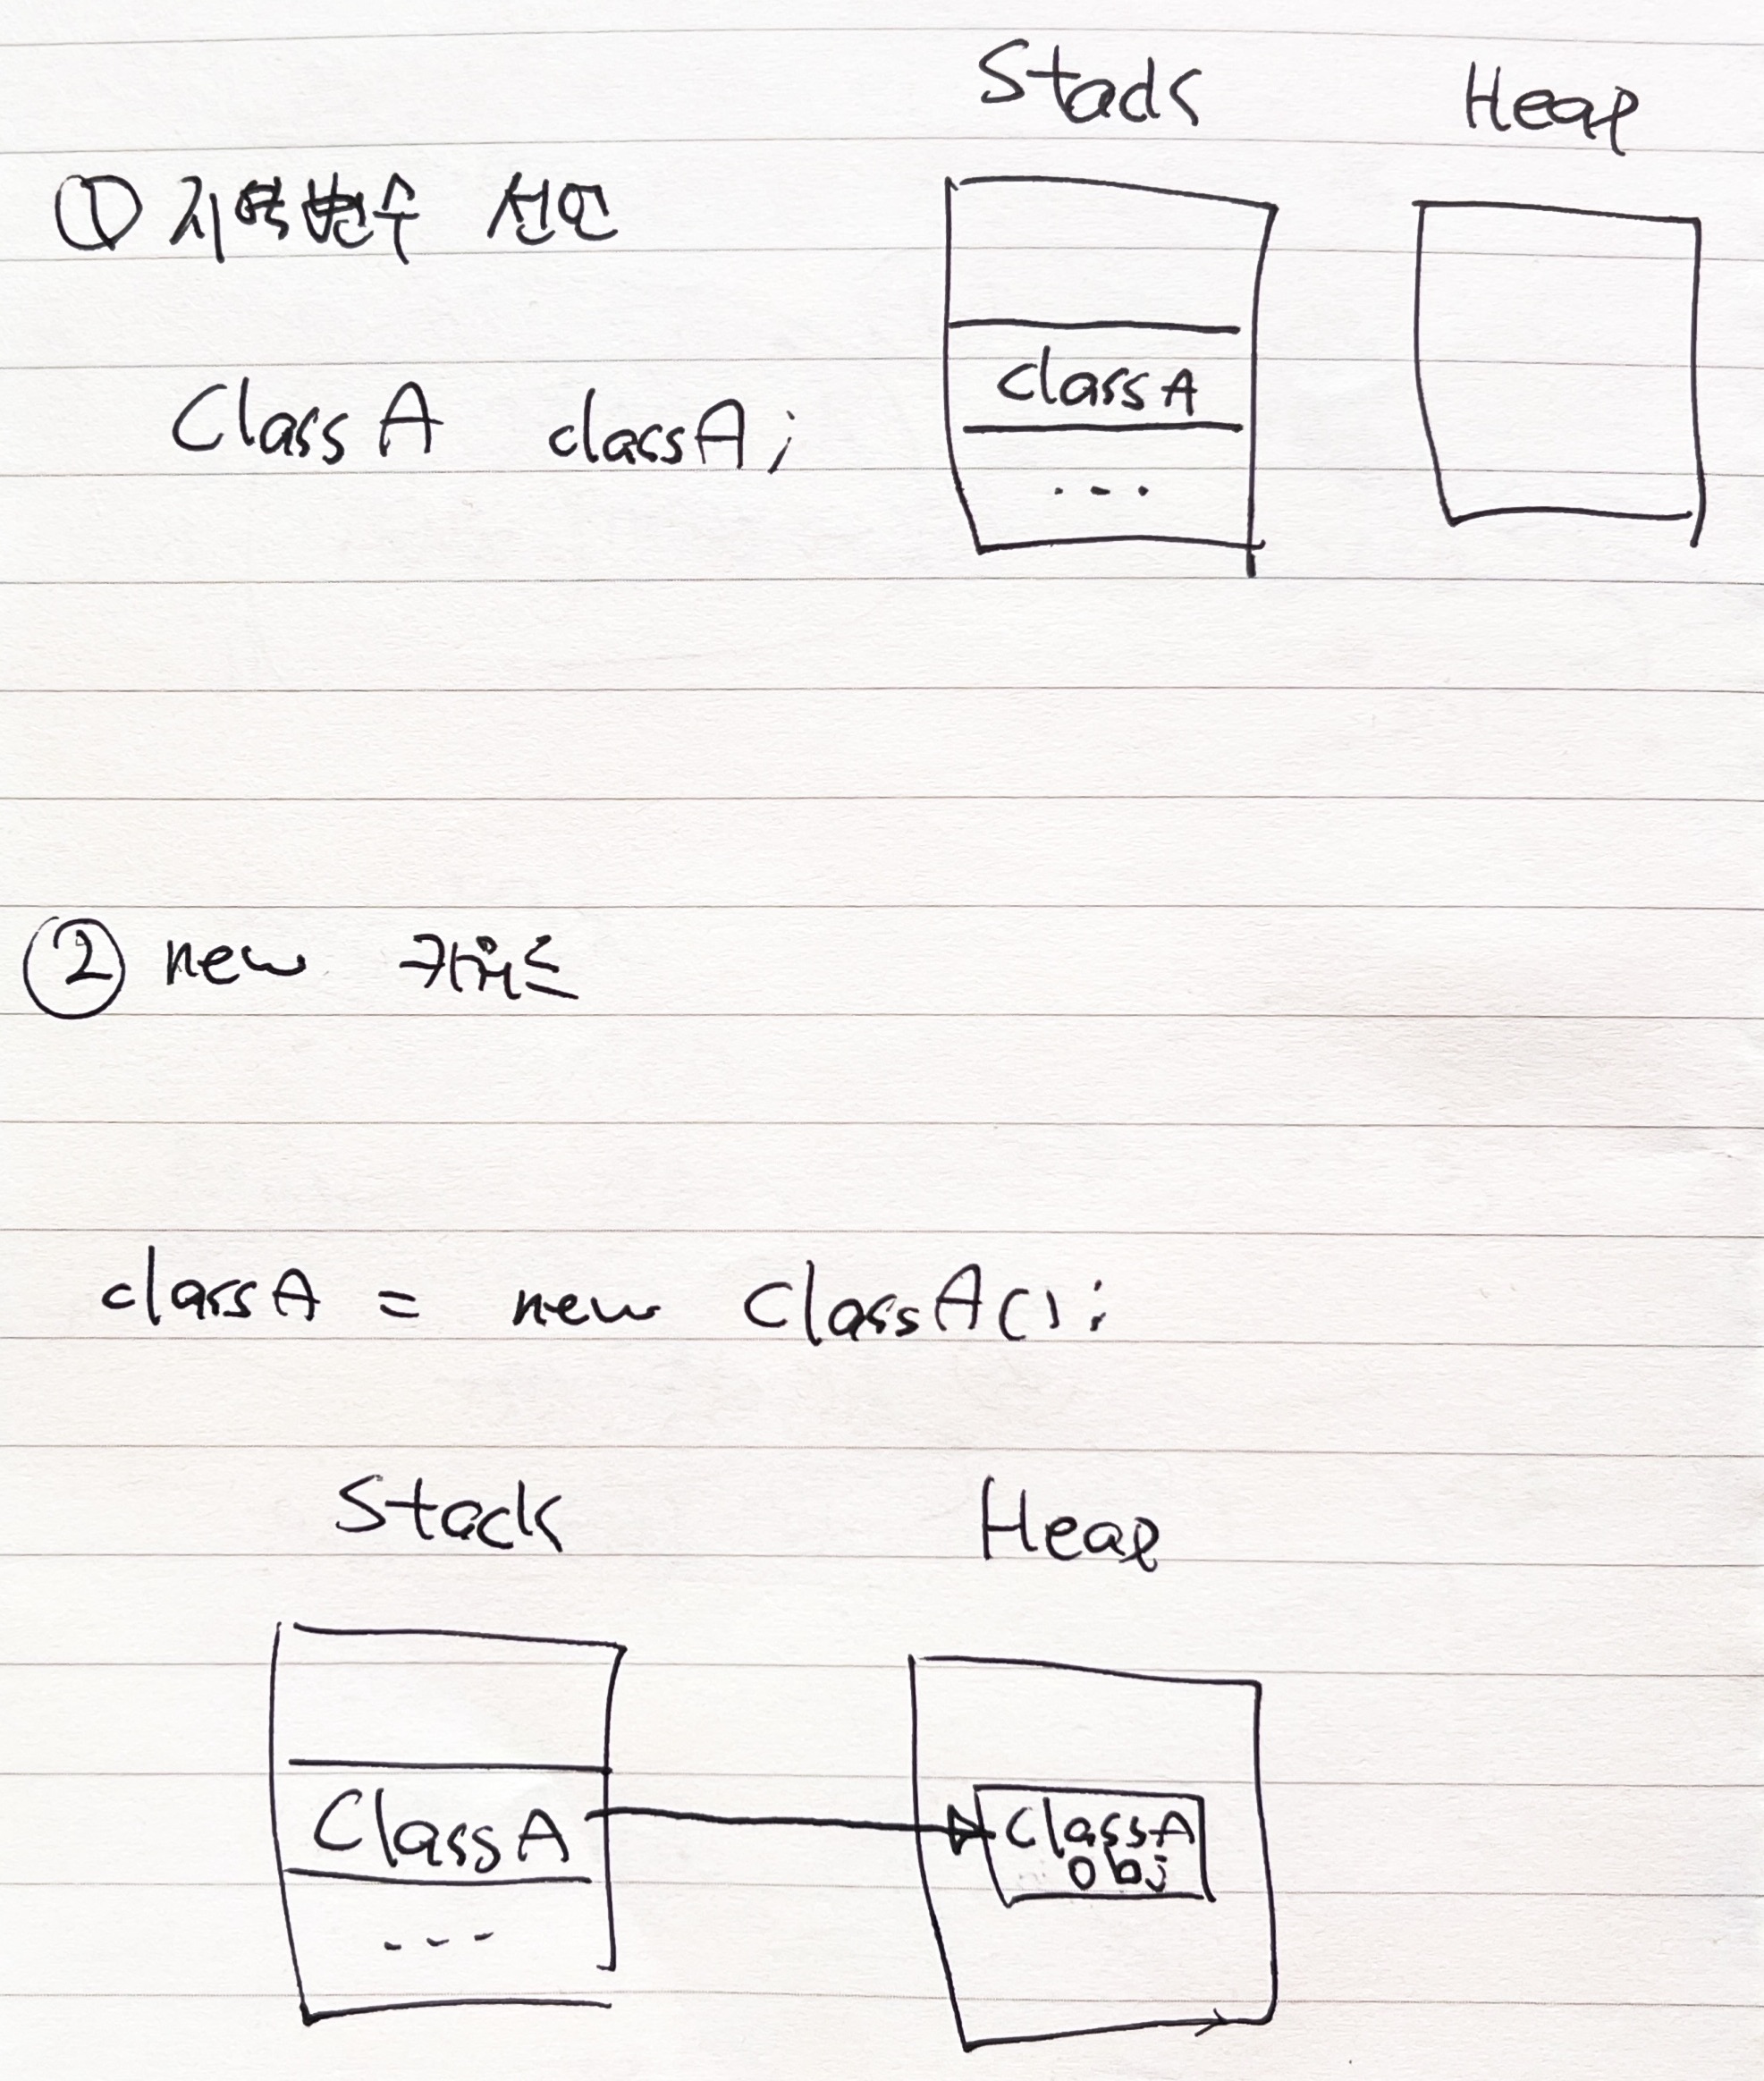 Stack Heap
① 지역변수 선언
ClassA classA;
classA
...
② new 키워드
classA = new ClassA();
Stack Heap
ClassA
ClassA
obj
...